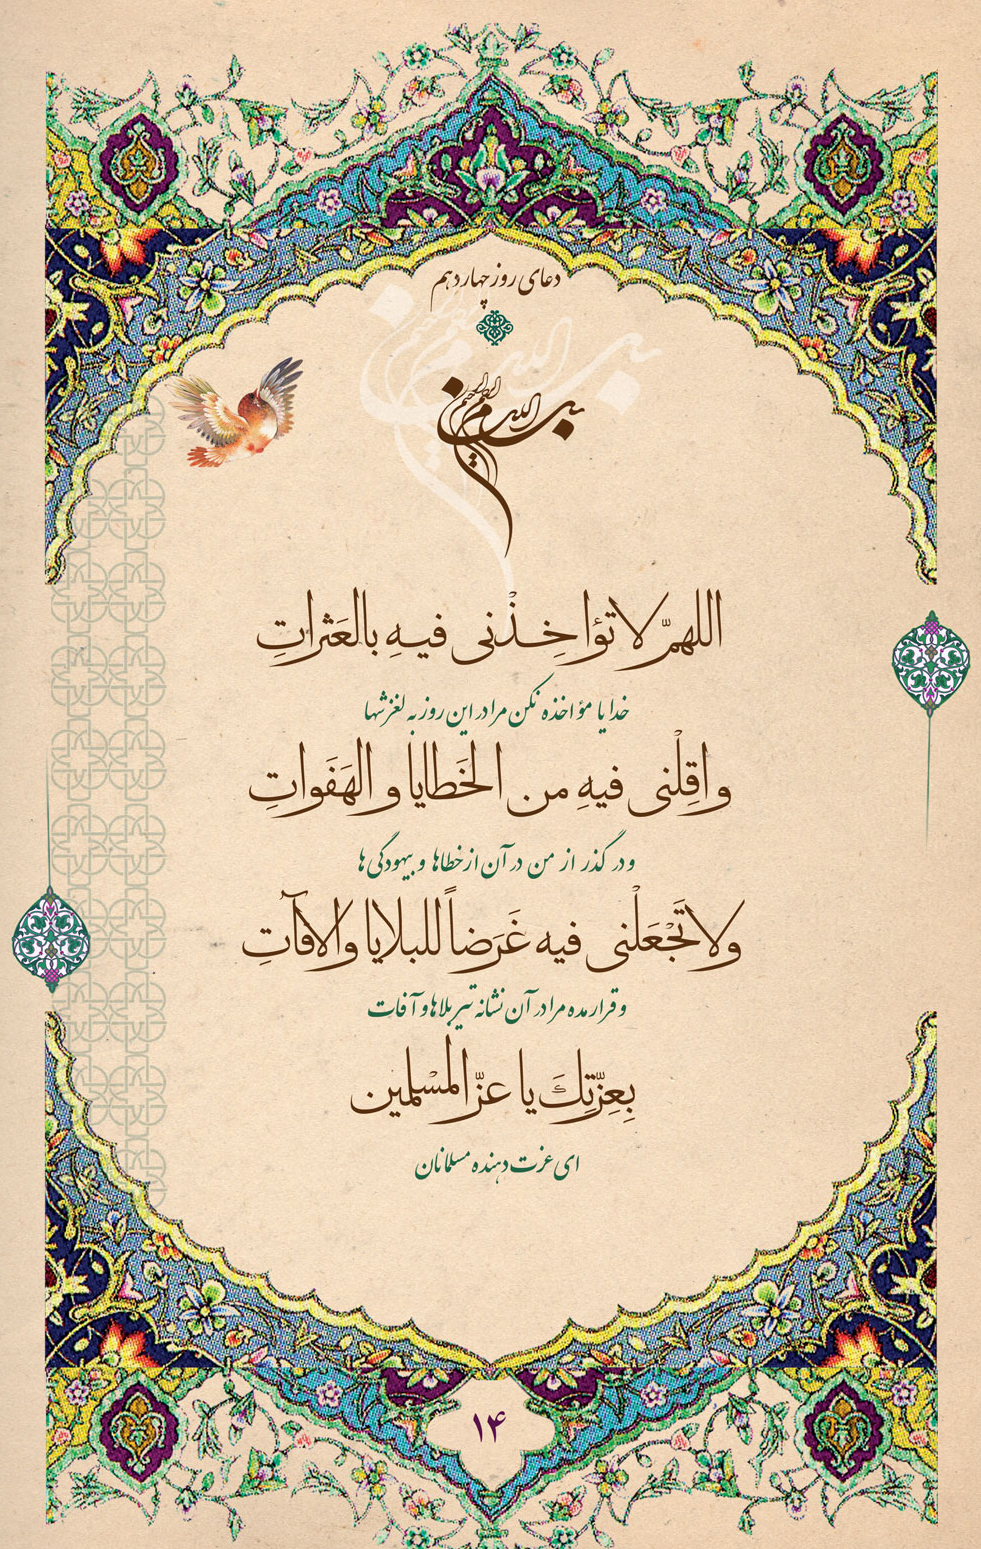 دعای روز چهاردهم
بسم الله الرحمن الرحیم
اللهمّ لا تؤاخِذْنی فیهِ بالعَثراتِ
خدایا مؤاخذه نکن مرا در این روز به لغزشها
واقِلْنی فیهِ من الخَطایا والهَفَواتِ
و در گذر از من در آن از خطاها و بیهودگی‌ها
ولا تَجْعَلْنی فیه غَرَضاً للبلایا والآفاتِ
و قرار مده مرا در آن نشانه تیر بلاها و آفات
بِعِزّتِكَ یا عزّ المسْلمین
ای عزت دهنده مسلمانان
۱۴